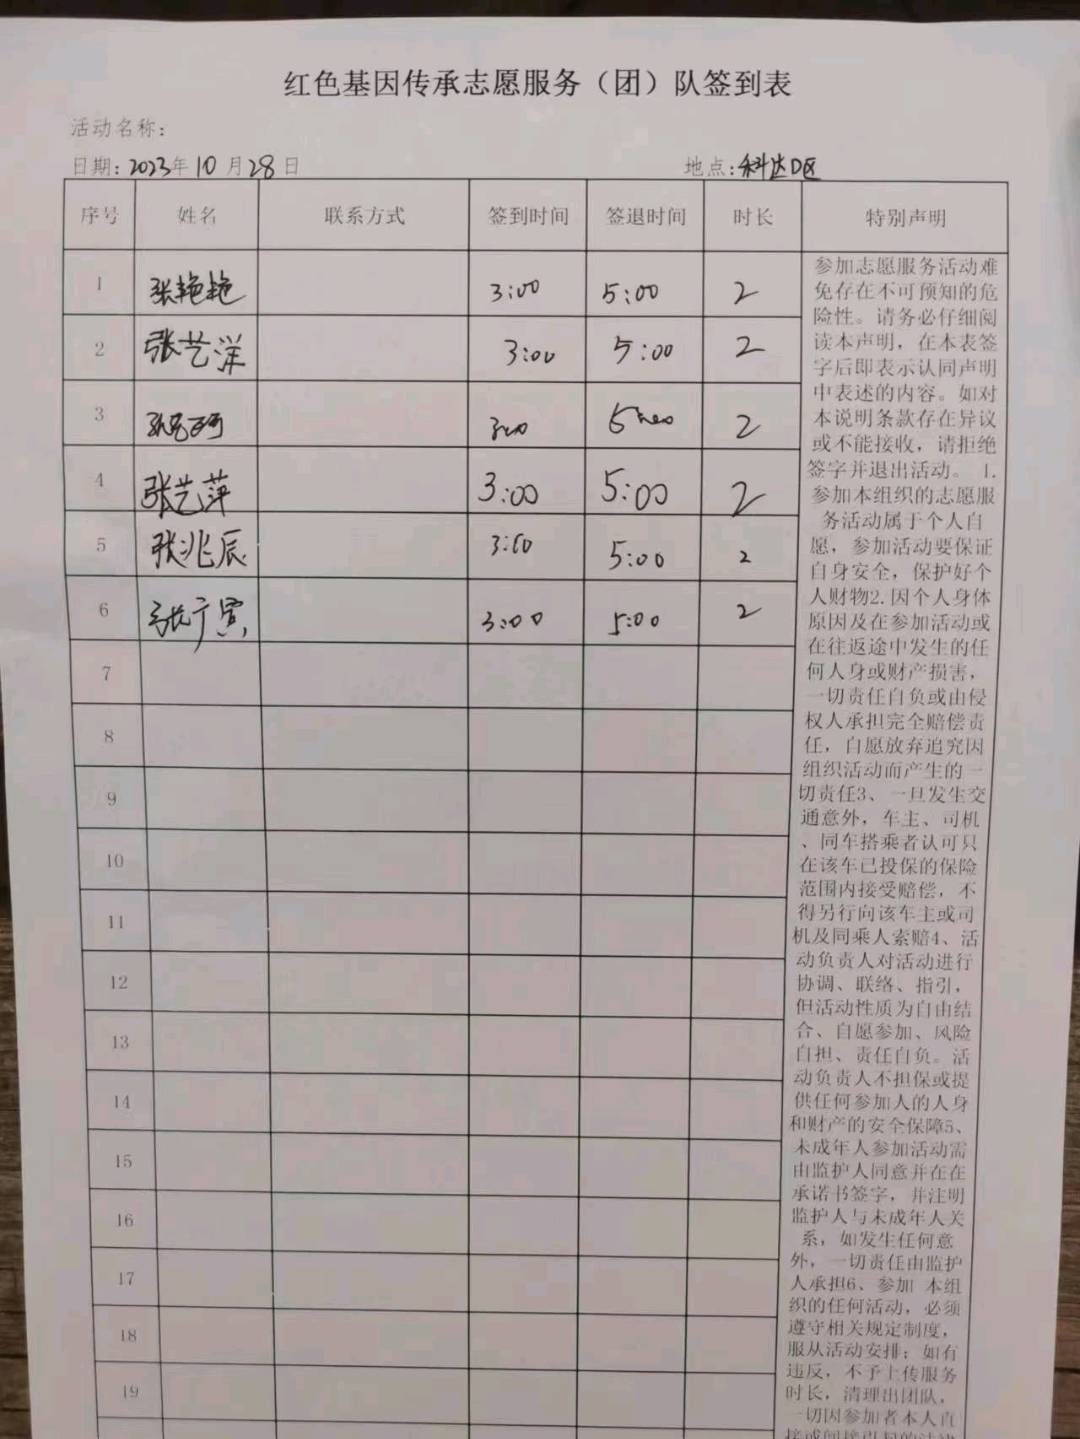 红色基因传承志愿服务（团）队签到表
活动名称：
日期：2023年10月28日 地点：科达D区
序号 姓名 联系方式 签到时间 签退时间 时长 特别声明
1 张艳艳 3:00 5:00 2
2 张艺洋 3:00 5:00 2
3 3:00 5:00 2
4 张艺萍 3:00 5:00 2
5 张兆辰 3:00 5:00 2
6 张广寅 3:00 5:00 2
7
8
9
10
11
12
13
14
15
16
17
18
19
参加志愿服务活动难
免存在不可预知的危
险性。请务必仔细阅
读本声明，在本表签
字后即表示认同声明
中表述的内容。如对
本说明条款存在异议
或不能接收，请拒绝
签字并退出活动。 1.
参加本组织的志愿服
务活动属于个人自
愿，参加活动要保证
自身安全，保护好个
人财物2.因个人身体
原因及在参加活动或
在往返途中发生的任
何人身或财产损害，
一切责任自负或由侵
权人承担完全赔偿责
任，自愿放弃追究因
组织活动而产生的一
切责任3、一旦发生交
通意外，车主、司机
、同车搭乘者认可只
在该车已投保的保险
范围内接受赔偿，不
得另行向该车主或司
机及同乘人索赔4、活
动负责人对活动进行
协调、联络、指引，
但活动性质为自由结
合、自愿参加、风险
自担、责任自负。活
动负责人不担保或提
供任何参加人的人身
和财产的安全保障5、
未成年人参加活动需
由监护人同意并在在
承诺书签字，并注明
监护人与未成年人关
系，如发生任何意
外，一切责任由监护
人承担6、参加 本组
织的任何活动，必须
遵守相关规定制度，
服从活动安排；如有
违反，不予上传服务
时长，清理出团队，
一切因参加者本人直